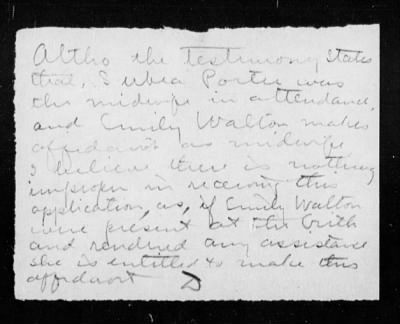 Altho the testimony states
that, Subia Porter was
the midwife in attendance,
and Emily Walton makes
affidavit as midwife
I believe there is nothing
improper in receiving this
application, as, if Emily Walton
were present at the birth
and rendered any assistance
she is entitled to make this
affidavit